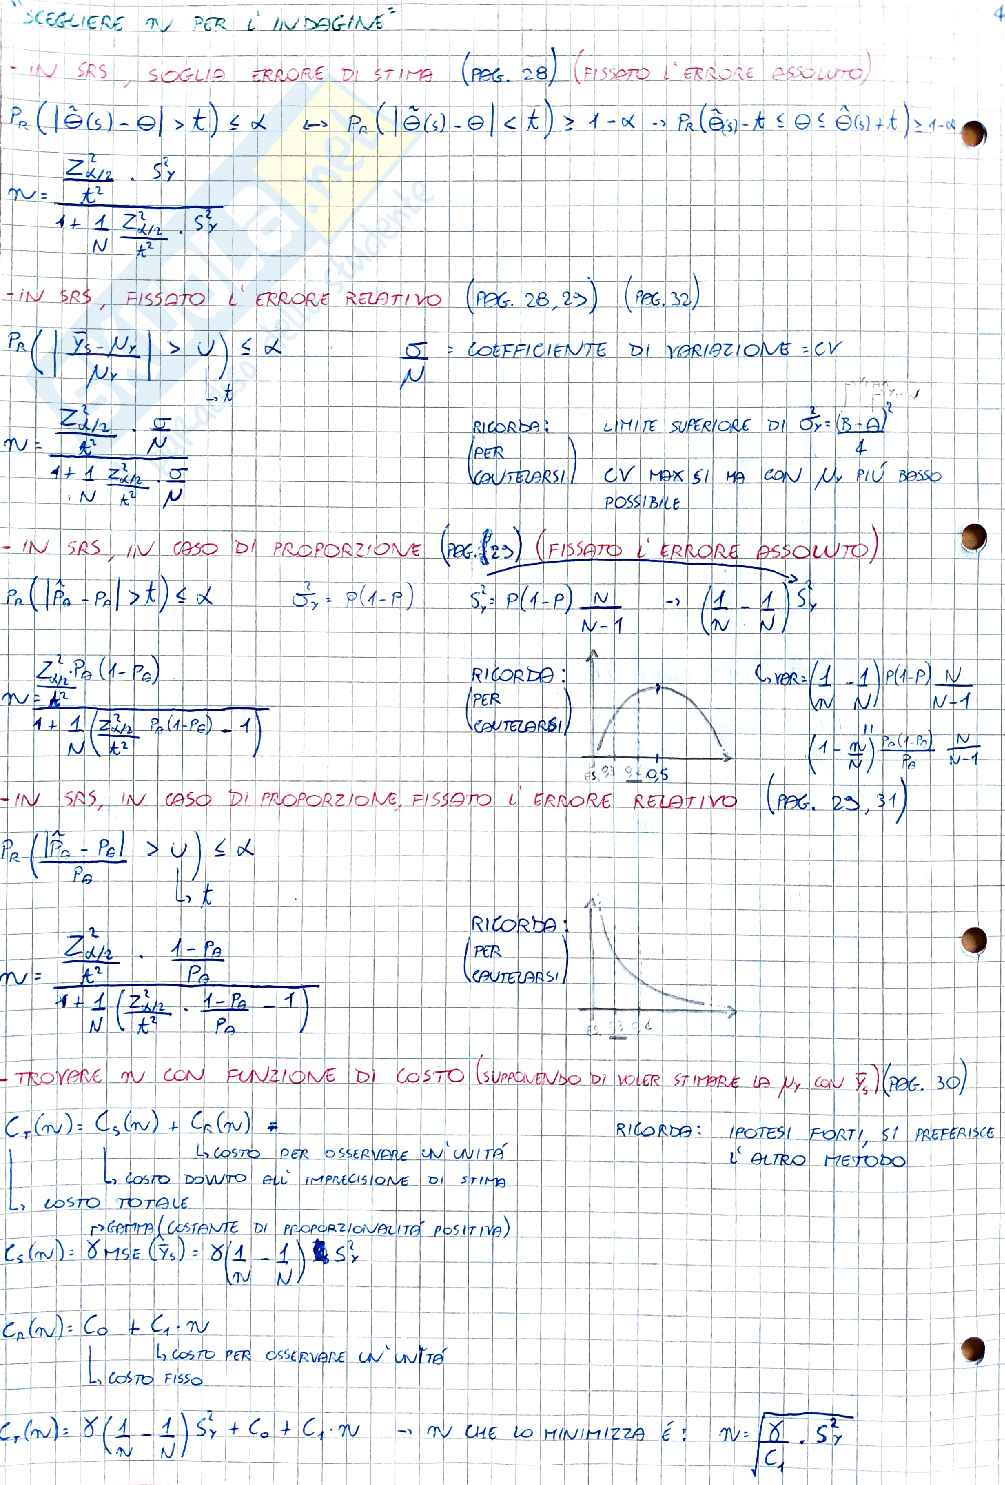 "SCEGLIERE n PER L'INDAGINE"
4
- IN SRS, SOGLIA ERRORE DI STIMA (PAG. 28) (FISSATO L'ERRORE ASSOLUTO)
PR(|θ̂(s) - θ| > t) ≤ α ↔ PR(|θ̂(s) - θ| < t) ≥ 1-α → PR(θ̂(s)-t ≤ θ ≤ θ̂(s)+t) ≥ 1-α
n = (Z²α/2 / t² · S²Y) / (1 + 1/N Z²α/2 / t² · S²Y)
- IN SRS, FISSATO L'ERRORE RELATIVO (PAG. 28, 29) (PAG. 32)
PR(|ȳs - μY / μY| > U) ≤ α σ/μ = COEFFICIENTE DI VARIAZIONE = CV
↳ t
n = (Z²α/2 / t² · σ/μ) / (1 + 1/N · Z²α/2 / t² · σ/μ)
RICORDA: LIMITE SUPERIORE DI σ²Y = (B-A)² / 4
(PER CAUTELARSI) CV MAX SI HA CON μY PIÚ BASSO
POSSIBILE
- IN SRS, IN CASO DI PROPORZIONE (PAG. 29) (FISSATO L'ERRORE ASSOLUTO)
PR(|P̂A - PA| > t) ≤ α σ²Y = P(1-P) S²Y = P(1-P) N/N-1 → (1/n - 1/N) S²Y
n = (Z²α/2 · PA(1-PA) / t²) / (1 + 1/N (Z²α/2 / t² PA(1-PA) - 1))
RICORDA:
(PER CAUTELARSI)
0,5
↳ VAR = (1/n - 1/N) P(1-P) N/N-1
"
(1 - n/N) PA(1-PA)/PA N/N-1
- IN SRS, IN CASO DI PROPORZIONE, FISSATO L'ERRORE RELATIVO (PAG. 29, 31)
PR(|P̂A - PA| / PA > U) ≤ α
↳ t
n = (Z²α/2 / t² · 1-PA / PA) / (1 + 1/N (Z²α/2 / t² · 1-PA / PA - 1))
RICORDA:
(PER CAUTELARSI)
- TROVARE n CON FUNZIONE DI COSTO (SUPPONENDO DI VOLER STIMARE LA μY CON ȳs) (PAG. 30)
CT(n) = CS(n) + CR(n) =
RICORDA: IPOTESI FORTI, SI PREFERISCE
L'ALTRO METODO
↳ COSTO PER OSSERVARE UN'UNITÁ
↳ COSTO DOVUTO ALL'IMPRECISIONE DI STIMA
↳ COSTO TOTALE
↱ GAMMA (COSTANTE DI PROPORZIONALITÁ POSITIVA)
CS(n) = γ MSE(ȳs) = γ(1/n - 1/N) S²Y
CR(n) = C0 + C1 · n
↳ COSTO PER OSSERVARE UN'UNITÁ
↳ COSTO FISSO
CT(n) = γ(1/n - 1/N) S²Y + C0 + C1 · n → n CHE LO MINIMIZZA É: n = √(γ/C1 · S²Y)